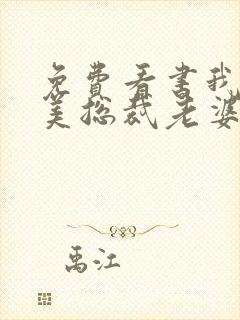 免費看書我
美总裁老婆
禹江